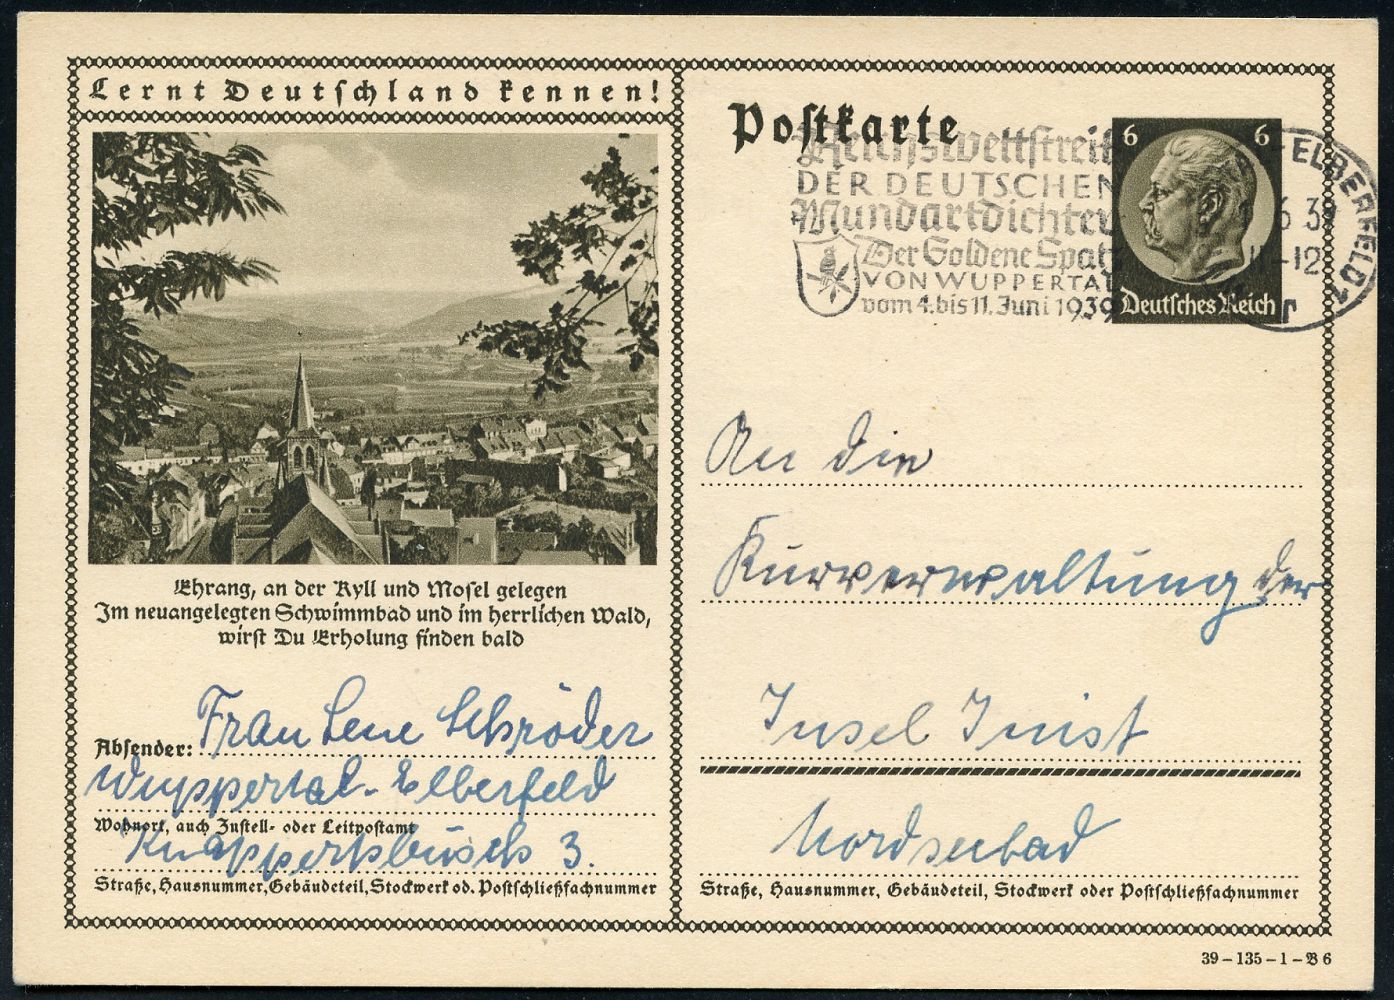 Lernt Deutschland kennen!
Ehrang, an der Kyll und Mosel gelegen
Im neuangelegten Schwimmbad und im herrlichen Wald,
wirst Du Erholung finden bald
Absender: Frau Lene Schröder
Wuppertal-Elberfeld
Wohnort, auch Zustell- oder Leitpostamt
3.
Straße, Hausnummer, Gebäudeteil, Stockwerk od. Postschließfachnummer
Postkarte
Reichswettstreit
DER DEUTSCHEN
Mundartdichter
Der Goldene Spatz
VON WUPPERTAL
vom 4. bis 11. Juni 1939
6 6
Deutsches Reich
-ELBERFELD 1
6 39
-12
An die
Kurverwaltung der
Insel Juist
Nordseebad
Straße, Hausnummer, Gebäudeteil, Stockwerk oder Postschließfachnummer
39 – 135 – 1 – B 6